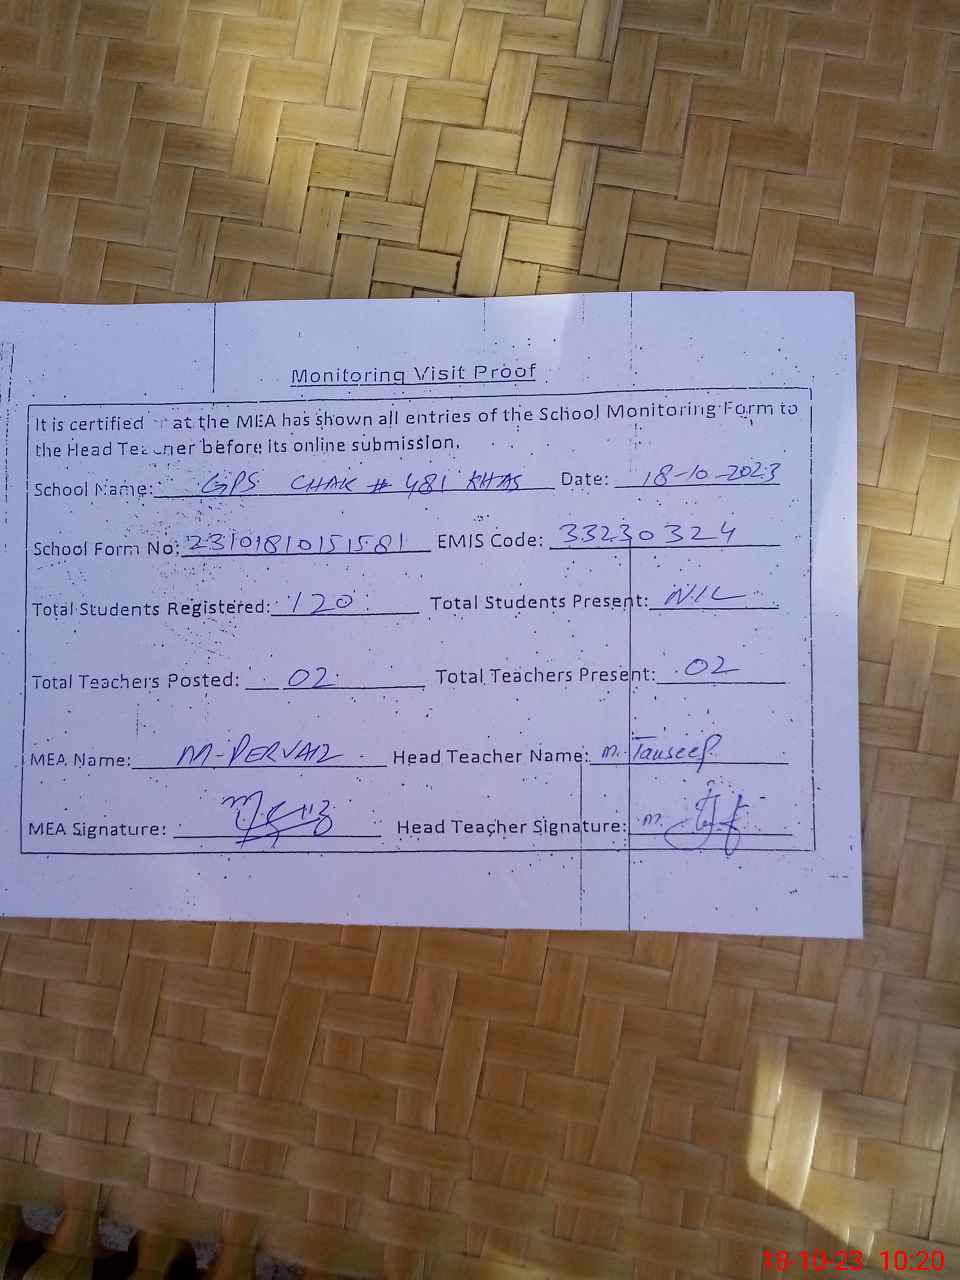 Monitoring Visit Proof
It is certified at the MEA has shown all entries of the School Monitoring Form to
the Head Teacher before its online submission.
School Name: GPS CHAK # 481 KHAS Date: 18-10-2023
School Form No: 23101810151581 EMIS Code: 33230324
Total Students Registered: 120 Total Students Present: NIL
Total Teachers Posted: 02 Total Teachers Present: 02
MEA Name: M-PERVAIZ Head Teacher Name: M. Tauseef
MEA Signature: Head Teacher Signature: M.
18-10-23 10:20